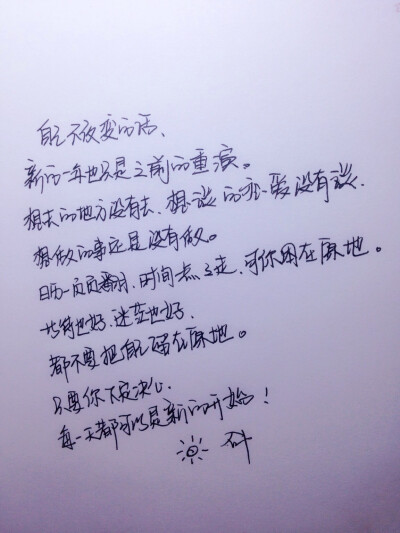 自己不改变的话、
新的一年也只是之前的重演。
想去的地方没有去、想谈的恋爱没有谈、
想做的事还是没有做。
日历一页页翻、时间点点走、可你困在原地。
大笑也好、迷茫也好、
都不要把自己留在原地。
只要你下定决心、
每一天都可以是新的开始！